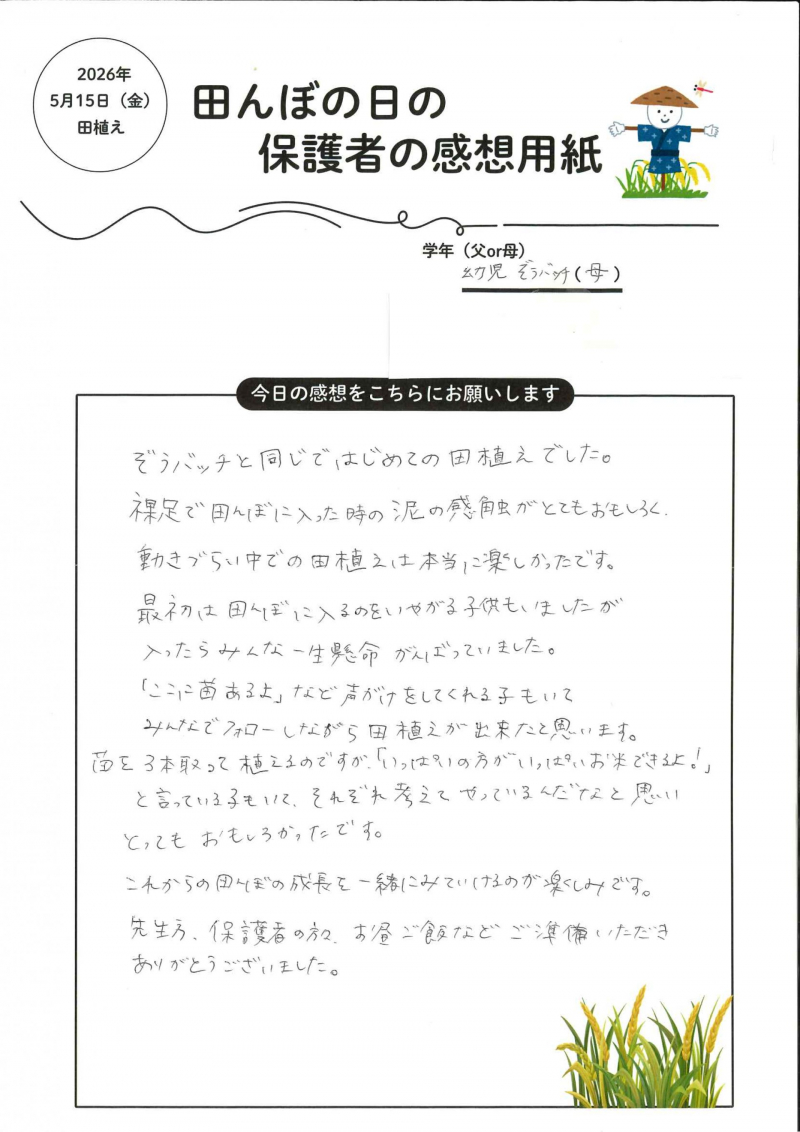 2026年
5月15日（金）
田植え
田んぼの日の
保護者の感想用紙
学年（父or母）
幼児 ぞうバッチ（母）
今日の感想をこちらにお願いします
ぞうバッチと同じではじめての田植えでした。
裸足で田んぼに入った時の泥の感触がとてもおもしろく、
動きづらい中での田植えは本当に楽しかったです。
最初は田んぼに入るのをいやがる子供もいましたが
入ったらみんな一生懸命がんばっていました。
「ここに苗あるよ」など声がけをしてくれる子もいて
みんなでフォローしながら田植えが出来たと思います。
苗を3本取って植えるのですが、「いっぱいの方がいっぱいお米できるよ！」
と言っている子もいて、それぞれ考えてやっているんだなと思い
とってもおもしろかったです。
これからの田んぼの成長を一緒にみていけるのが楽しみです。
先生方、保護者の方々、お昼ご飯などご準備いただき
ありがとうございました。